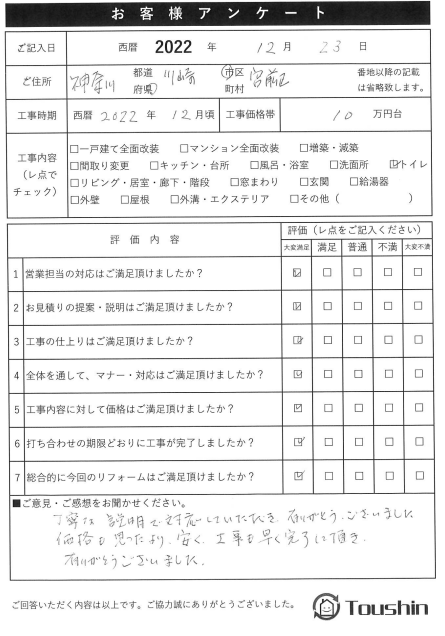 お客様アンケート
ご記入日 西暦 2022 年 12月 23日
ご住所 神奈川 都道府県 川崎 市区町村 宮前区 番地以降の記載は省略致します。
工事時期 西暦 2022 年 12 月頃 工事価格帯 10 万円台
工事内容（レ点でチェック）
□一戸建て全面改装 □マンション全面改装 □増築・減築
□間取り変更 □キッチン・台所 □風呂・浴室 □洗面所 ☑トイレ
□リビング・居室・廊下・階段 □窓まわり □玄関 □給湯器
□外壁 □屋根 □外溝・エクステリア □その他（ ）
評価内容 評価（レ点をご記入ください）
大変満足 満足 普通 不満 大変不満
1 営業担当の対応はご満足頂けましたか？ ☑ □ □ □ □
2 お見積りの提案・説明はご満足頂けましたか？ ☑ □ □ □ □
3 工事の仕上りはご満足頂けましたか？ ☑ □ □ □ □
4 全体を通して、マナー・対応はご満足頂けましたか？ ☑ □ □ □ □
5 工事内容に対して価格はご満足頂けましたか？ ☑ □ □ □ □
6 打ち合わせの期限どおりに工事が完了しましたか？ ☑ □ □ □ □
7 総合的に今回のリフォームはご満足頂けましたか？ ☑ □ □ □ □
■ご意見・ご感想をお聞かせください。
丁寧な説明で対応していただき、ありがとうございました
価格も思ったより、安く、工事も早く完了に頂き、
ありがとうございました。
ご回答いただく内容は以上です。ご協力誠にありがとうございました。
Toushin